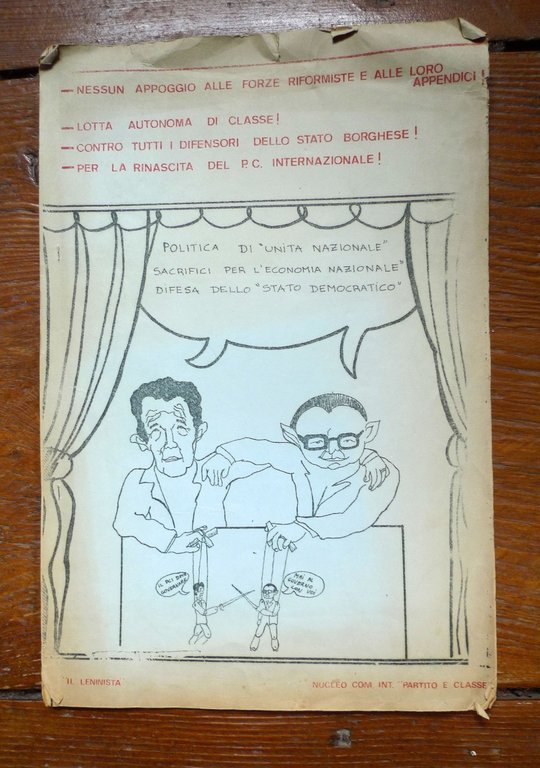 — NESSUN APPOGGIO ALLE FORZE RIFORMISTE E ALLE LORO
APPENDICI!
— LOTTA AUTONOMA DI CLASSE!
— CONTRO TUTTI I DIFENSORI DELLO STATO BORGHESE!
— PER LA RINASCITA DEL P.C. INTERNAZIONALE!
POLITICA DI "UNITA NAZIONALE"
SACRIFICI PER L'ECONOMIA NAZIONALE"
DIFESA DELLO "STATO DEMOCRATICO"
IL PCI DEVE
GOVERNARE
MAI AL
GOVERNO
CON VOI
"IL LENINISTA
NUCLEO COM. INT. "PARTITO E CLASSE"